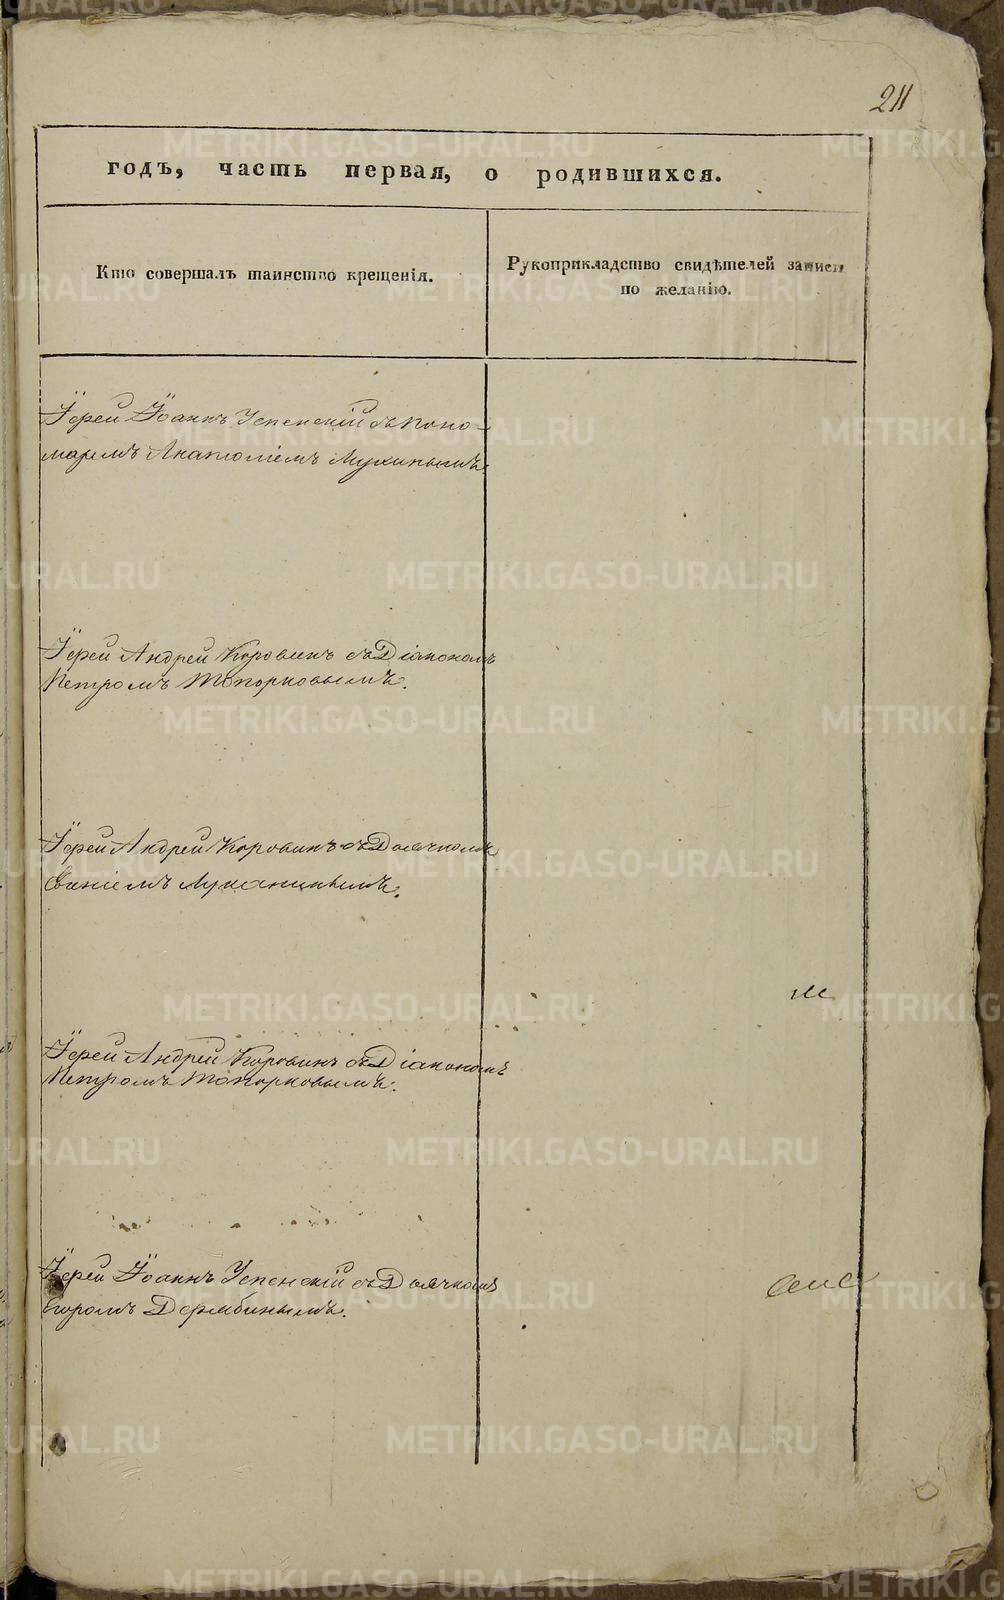 211
годъ, часть первая, о родившихся.
Кто совершалъ таинство крещенія.
Рукоприкладство свидѣтелей записи
по желанію.
Іерей Іоаннъ Успенскій съ поно-
маремъ Анатоліемъ Мухинымъ.
Іерей Андрей Коровинъ съ Діакономъ
Петромъ Топорковымъ.
Іерей Андрей Коровинъ съ Дьячкомъ
Іерей Андрей Коровинъ съ Діакономъ
Петромъ Топорковымъ.
Іерей Іоаннъ Успенскій съ Дьячкомъ
Егоромъ Дерябинымъ.
METRIKI.GASO-URAL.RU